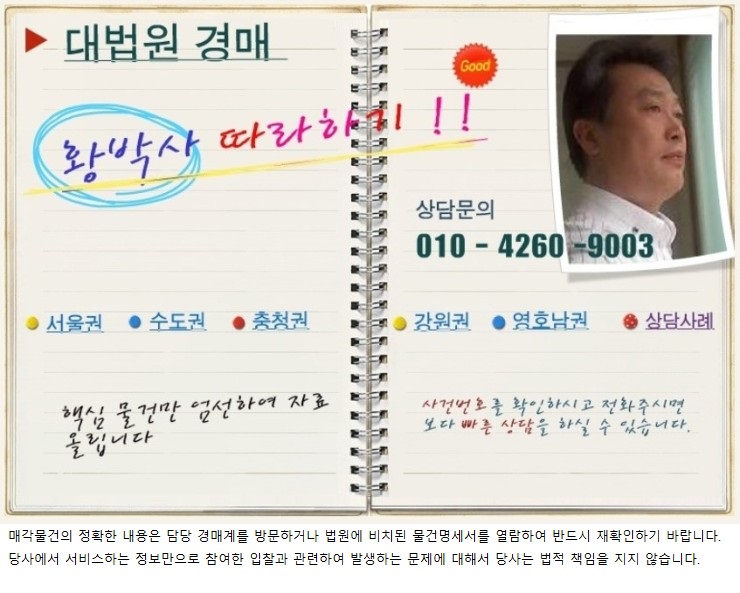 대법원 경매
Good
황박사 따라하기 !!
상담문의
010 - 4260 -9003
서울권 수도권 충청권 강원권 영호남권 상담사례
핵심 물건만 엄선하여 자료
올립니다
사건번호를 확인하시고 전화주시면
보다 빠른 상담을 하실 수 있습니다.
매각물건의 정확한 내용은 담당 경매계를 방문하거나 법원에 비치된 물건명세서를 열람하여 반드시 재확인하기 바랍니다.
당사에서 서비스하는 정보만으로 참여한 입찰과 관련하여 발생하는 문제에 대해서 당사는 법적 책임을 지지 않습니다.